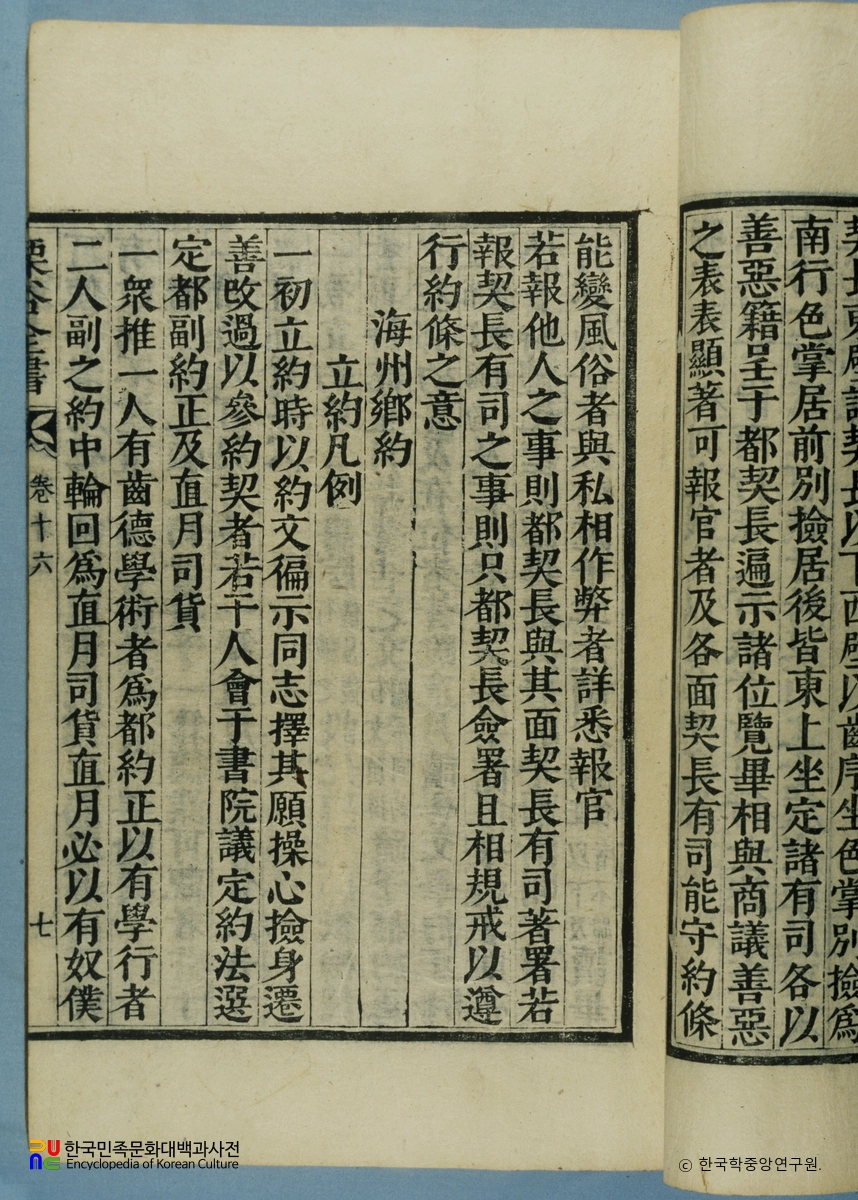 契長東壁諸契長以下西壁以齒序坐色掌別撿爲
南行色掌居前別撿居後皆東上坐定諸有司各以
善惡籍呈于都契長遍示諸位覽畢相與商議善惡
之表表顯著可報官者及各面契長有司能守約條
能變風俗者與私相作弊者詳悉報官
若報他人之事則都契長與其面契長有司著署若
報契長有司之事則只都契長僉署且相規戒以遵
行約條之意
海州鄕約
立約凡例
一初立約時以約文徧示同志擇其願操心撿身遷
善改過以參約契者若干人會于書院議定約法選
定都副約正及直月司貨
一衆推一人有齒德學術者爲都約正以有學行者
二人副之約中輪回爲直月司貨直月必以有奴僕
栗谷全書 卷十六 七
한국민족문화대백과사전
Encyclopedia of Korean Culture
© 한국학중앙연구원.